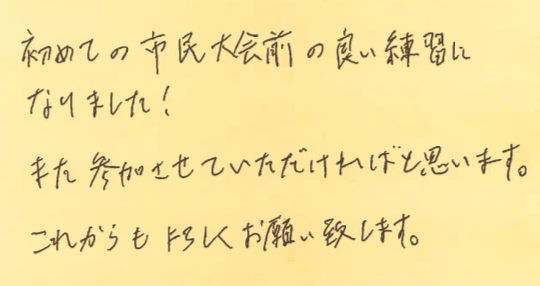 初めての市民大会前の良い練習に
なりました!
また参加させていただければと思います。
これからもよろしくお願い致します。